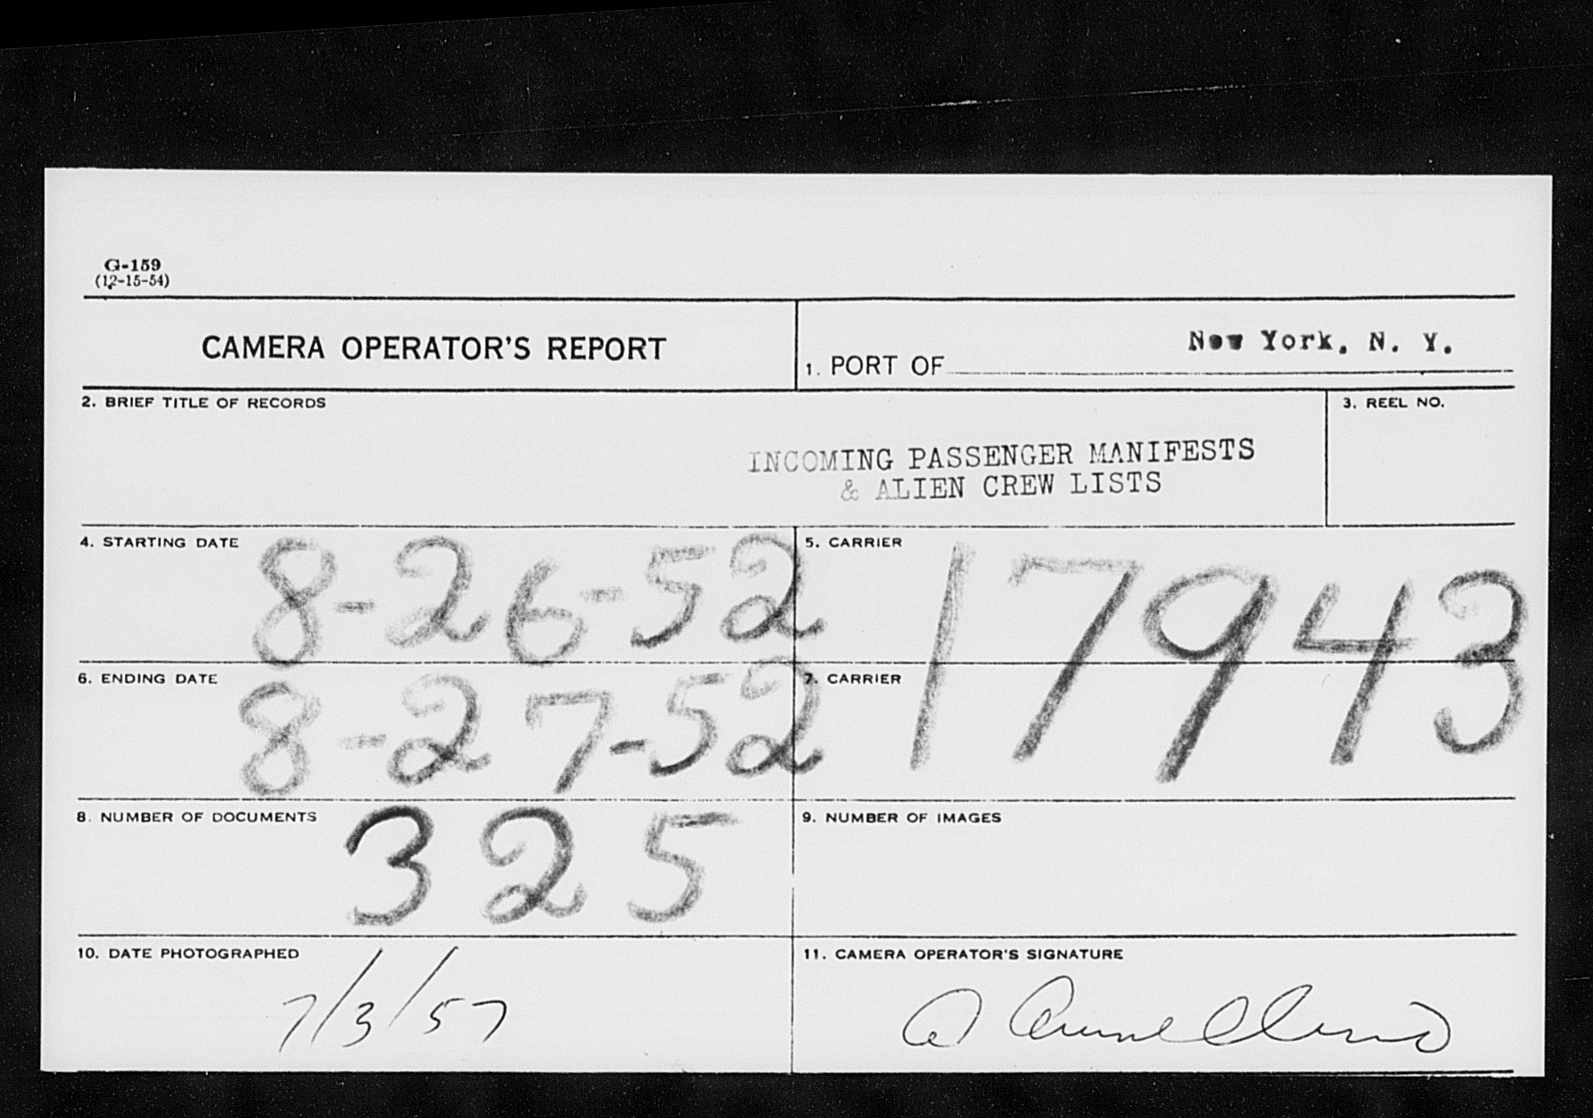 G-159
(12-15-54)
CAMERA OPERATOR'S REPORT
1. PORT OF New York, N. Y.
2. BRIEF TITLE OF RECORDS
3. REEL NO.
INCOMING PASSENGER MANIFESTS
& ALIEN CREW LISTS
4. STARTING DATE 8-26-52
5. CARRIER
17943
6. ENDING DATE 8-27-52
7. CARRIER
8. NUMBER OF DOCUMENTS 325
9. NUMBER OF IMAGES
10. DATE PHOTOGRAPHED
7/3/57
11. CAMERA OPERATOR'S SIGNATURE